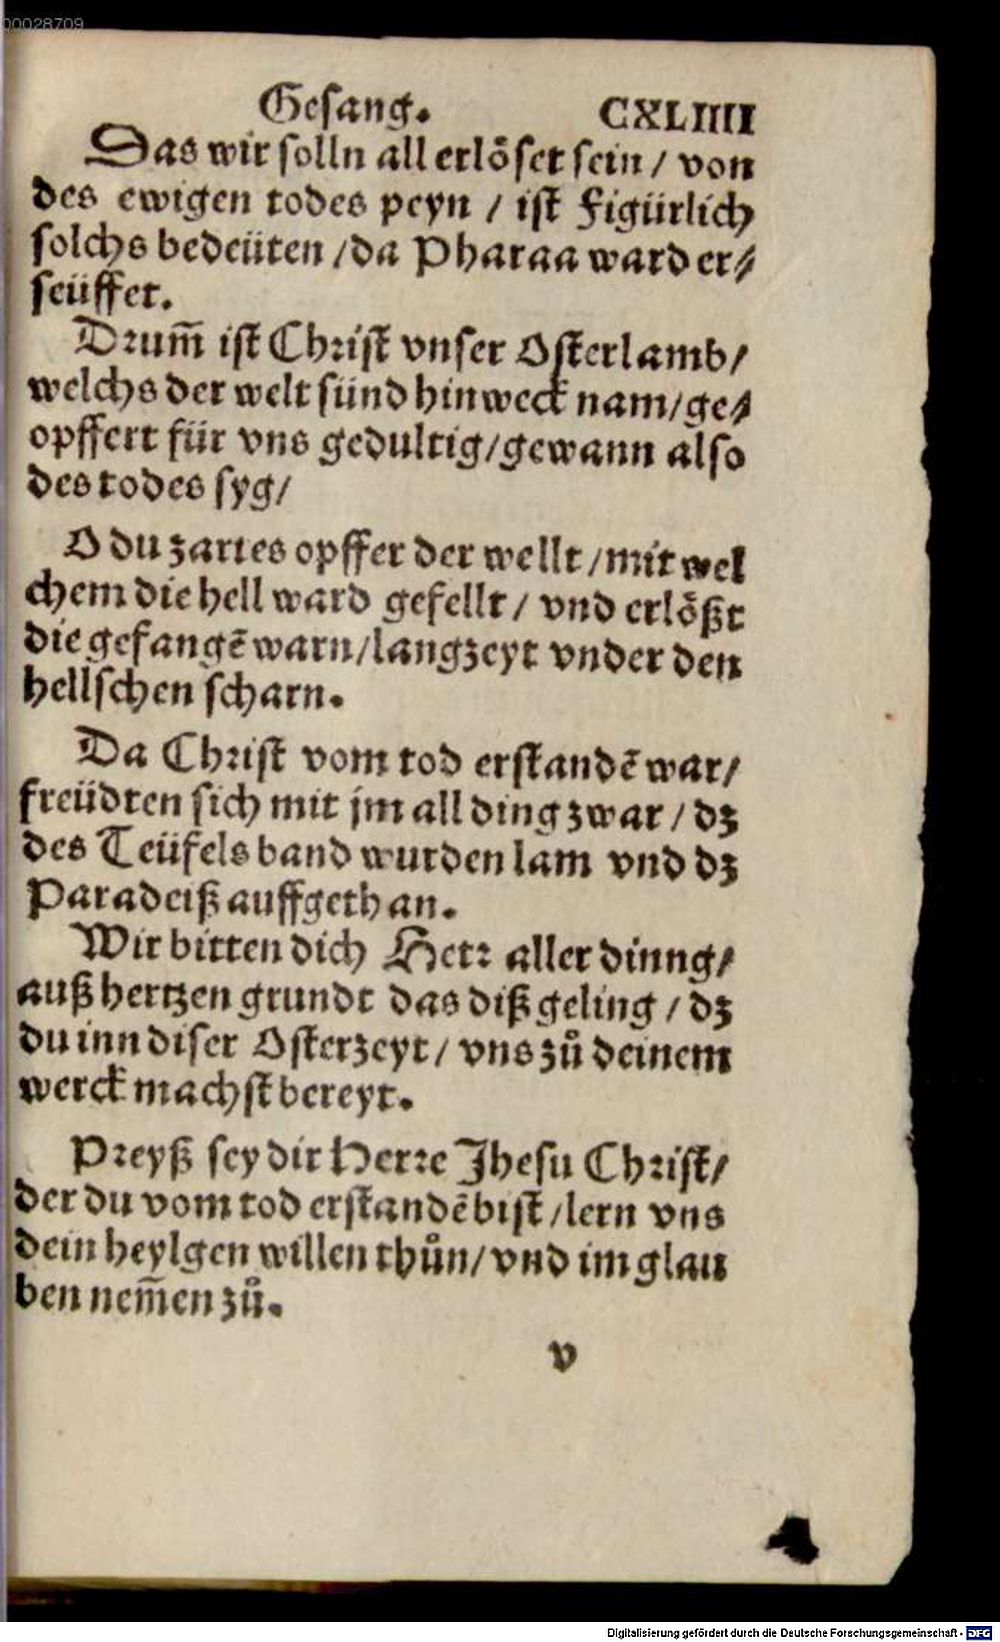 00028709
Gesang. CXLIIII
Das wir solln all erlöset sein / von
des ewigen todes peyn / ist Figürlich
solchs bedeüten / da Pharaa ward er⸗
seüffet.
Drum̃ ist Christ vnser Osterlamb /
welchs der welt sünd hin weck nam / ge⸗
opffert für vns gedultig / gewann also
des todes syg /
O du zartes opffer der wellt / mit wel
chem die hell ward gefellt / vnd erlößt
die gefangẽ warn / lang zeyt vnder den
hellschen scharn.
Da Christ vom tod erstandẽ war /
freüdten sich mit jm all ding zwar / dz
des Teüfels band wurden lam vnd dz
Paradeiß auffgethan.
Wir bitten dich Herr aller dinng /
auß hertzen grundt das diß geling / dz
du inn diser Osterzeyt / vns zů deinem
werck machst bereyt.
Preyß sey dir Herre Jhesu Christ /
der du vom tod erstandẽ bist / lern vns
dein heylgen willen thůn / vnd im glau
ben nem̃en zů.
v
Digitalisierung gefördert durch die Deutsche Forschungsgemeinschaft - DFG